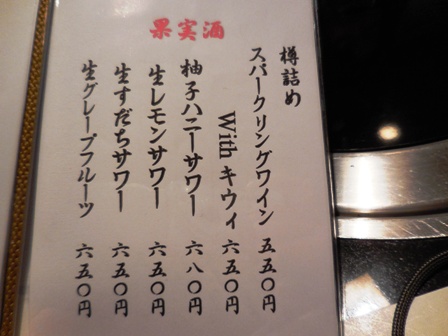 果実酒
樽詰め
スパークリングワイン 五五〇円
With キウィ 六五〇円
柚子ハニーサワー 六八〇円
生レモンサワー 六五〇円
生すだちサワー 六五〇円
生グレープフルーツ 六五〇円